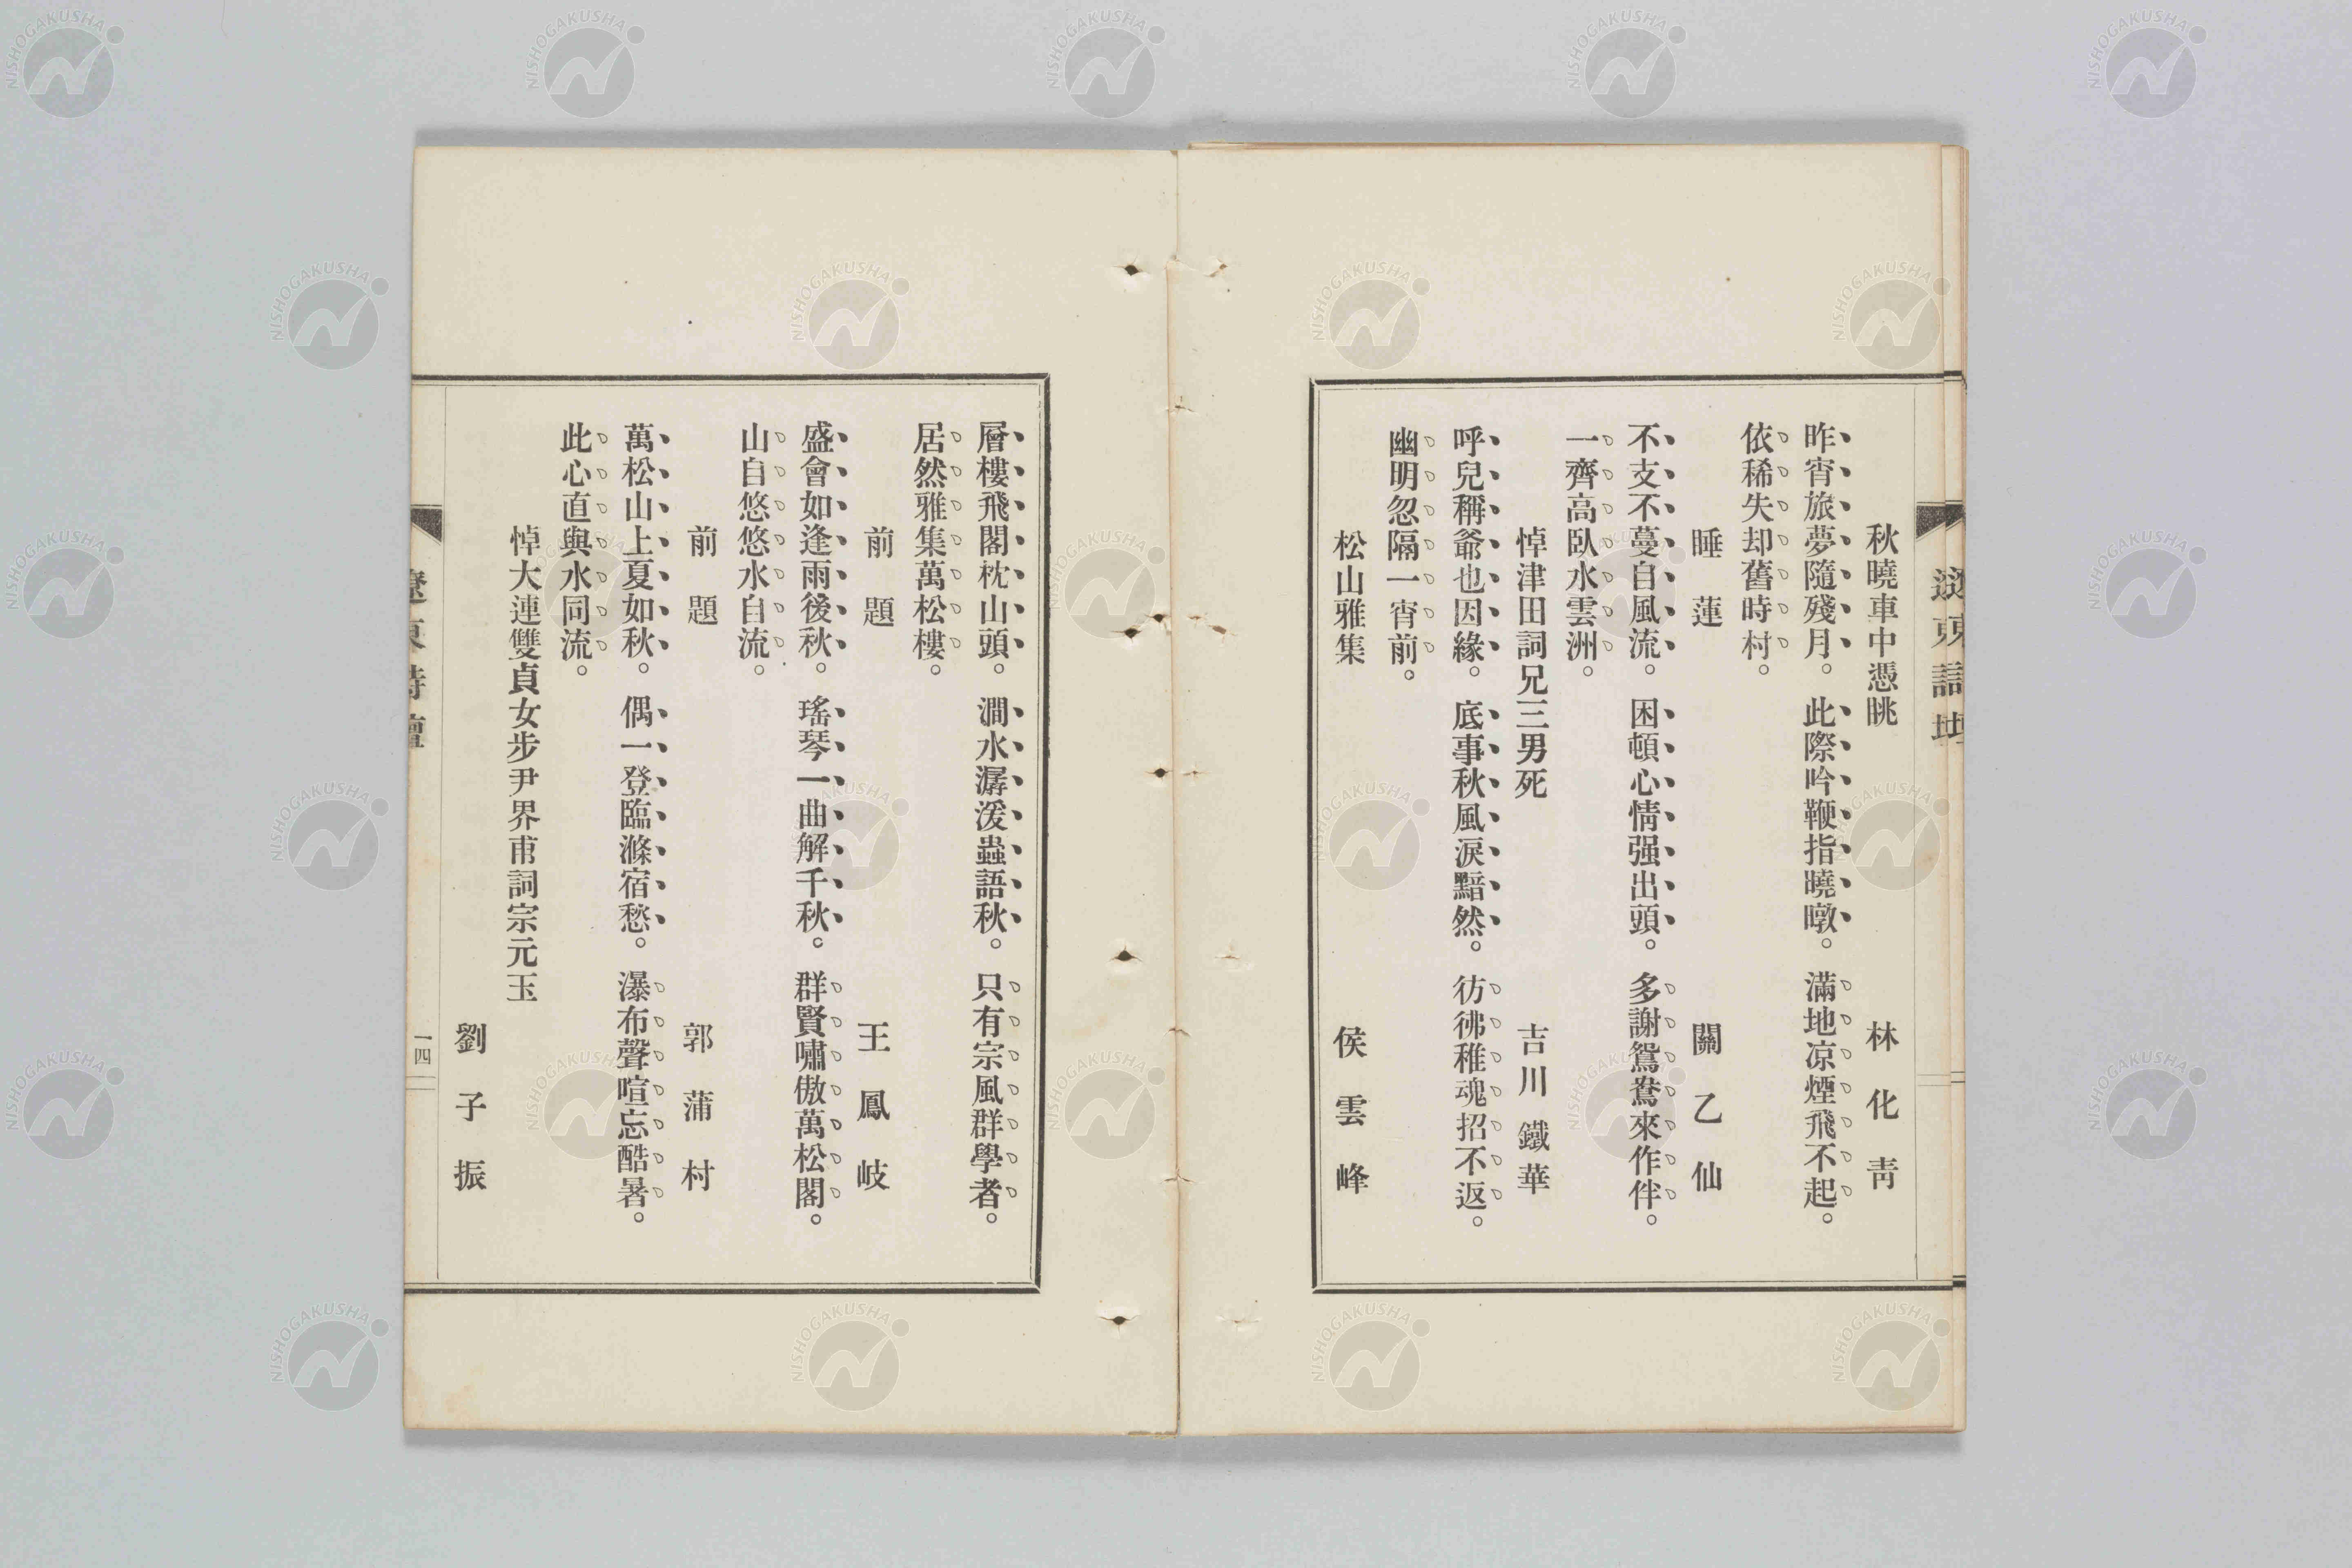 秋曉車中憑眺　林化靑
昨宵旅夢隨殘月。此際吟鞭指曉暾。滿地凉煙飛不起。
依稀失却舊時村。
睡蓮　關乙仙
不支不蔓自風流。困頓心情强出頭。多謝鴛鴦來作伴。
一齊高臥水雲洲。
悼津田詞兄三男死　吉川鐵華
呼兒稱爺也因緣。底事秋風淚黯然。彷彿稚魂招不返。
幽明忽隔一宵前。
松山雅集　侯雲峰
層樓飛閣枕山頭。澗水潺湲蟲語秋。只有宗風群學者。
居然雅集萬松樓。
前題　王鳳岐
盛會如逢雨後秋。瑤琴一曲解千秋。群賢嘯傲萬松閣。
山自悠悠水自流。
前題　郭蒲村
萬松山上夏如秋。偶一登臨滌宿愁。瀑布聲喧忘酷暑。
此心直與水同流。
悼大連雙貞女步尹界甫詞宗元玉
劉子振
遼東詩壇
一四
NISHOGAKUSHA